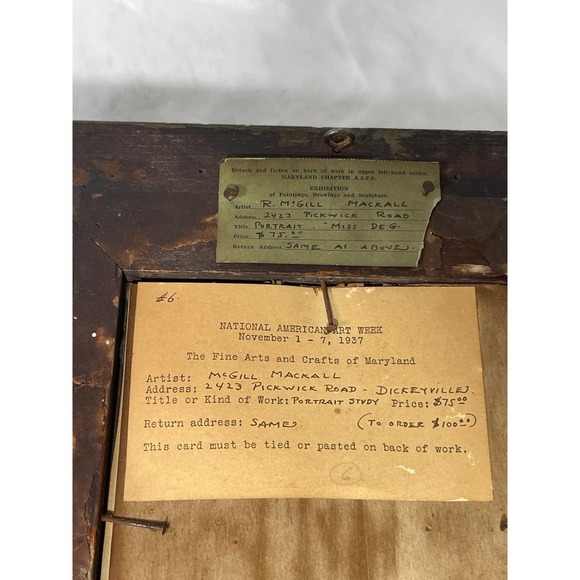 Detach and fasten on back of work in upper left-hand corner.
MARYLAND CHAPTER A.A.P.L.
EXHIBITION
of Paintings, Drawings and Sculpture.
Artist R. McGILL MACKALL
Address 2423 PICKWICK ROAD
Title PORTRAIT. "MISS DE G.
Price $75.00
Return Address SAME AS ABOVE.
#6.
NATIONAL AMERICAN ART WEEK
November 1 - 7, 1937
The Fine Arts and Crafts of Maryland
Artist: McGILL MACKALL
Address: 2423 PICKWICK ROAD - DICKEYVILLE
Title or Kind of Work: PORTRAIT STUDY Price: $75.00
Return address: SAME. (TO ORDER $100.00)
This card must be tied or pasted on back of work.
6